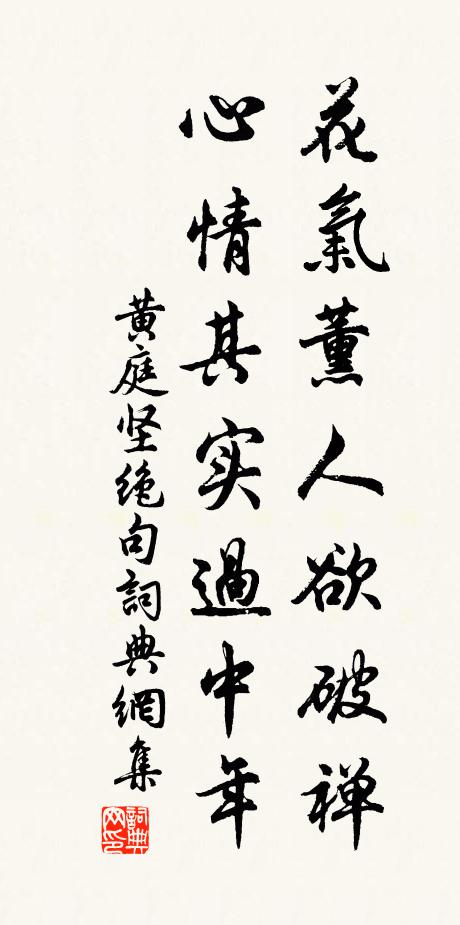 花氣薰人欲破禅
心情其实過中年
黄庭坚绝句詞典網集
詞典
网印